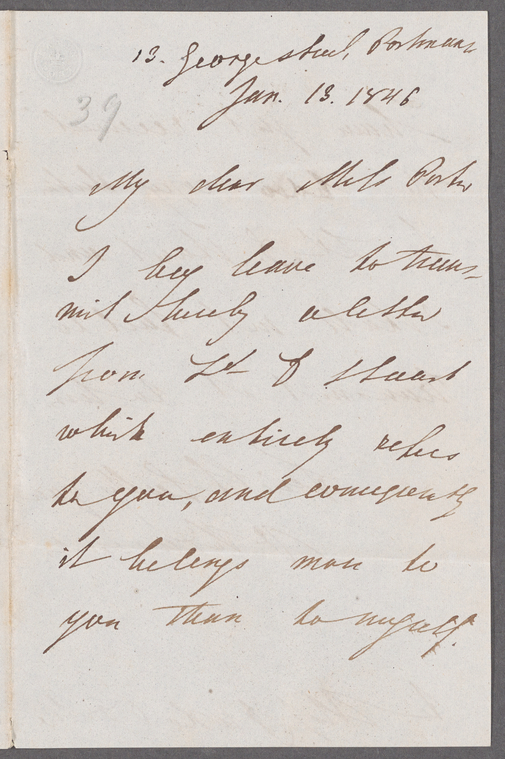 13. George street, Portman
Jan. 13. 1846
39
My dear Miss Porter
I beg leave to trans-
mit hereby a letter
from Ld D Stuart
which entirely refers
to you, and consequently
it belongs more to
you than to myself.